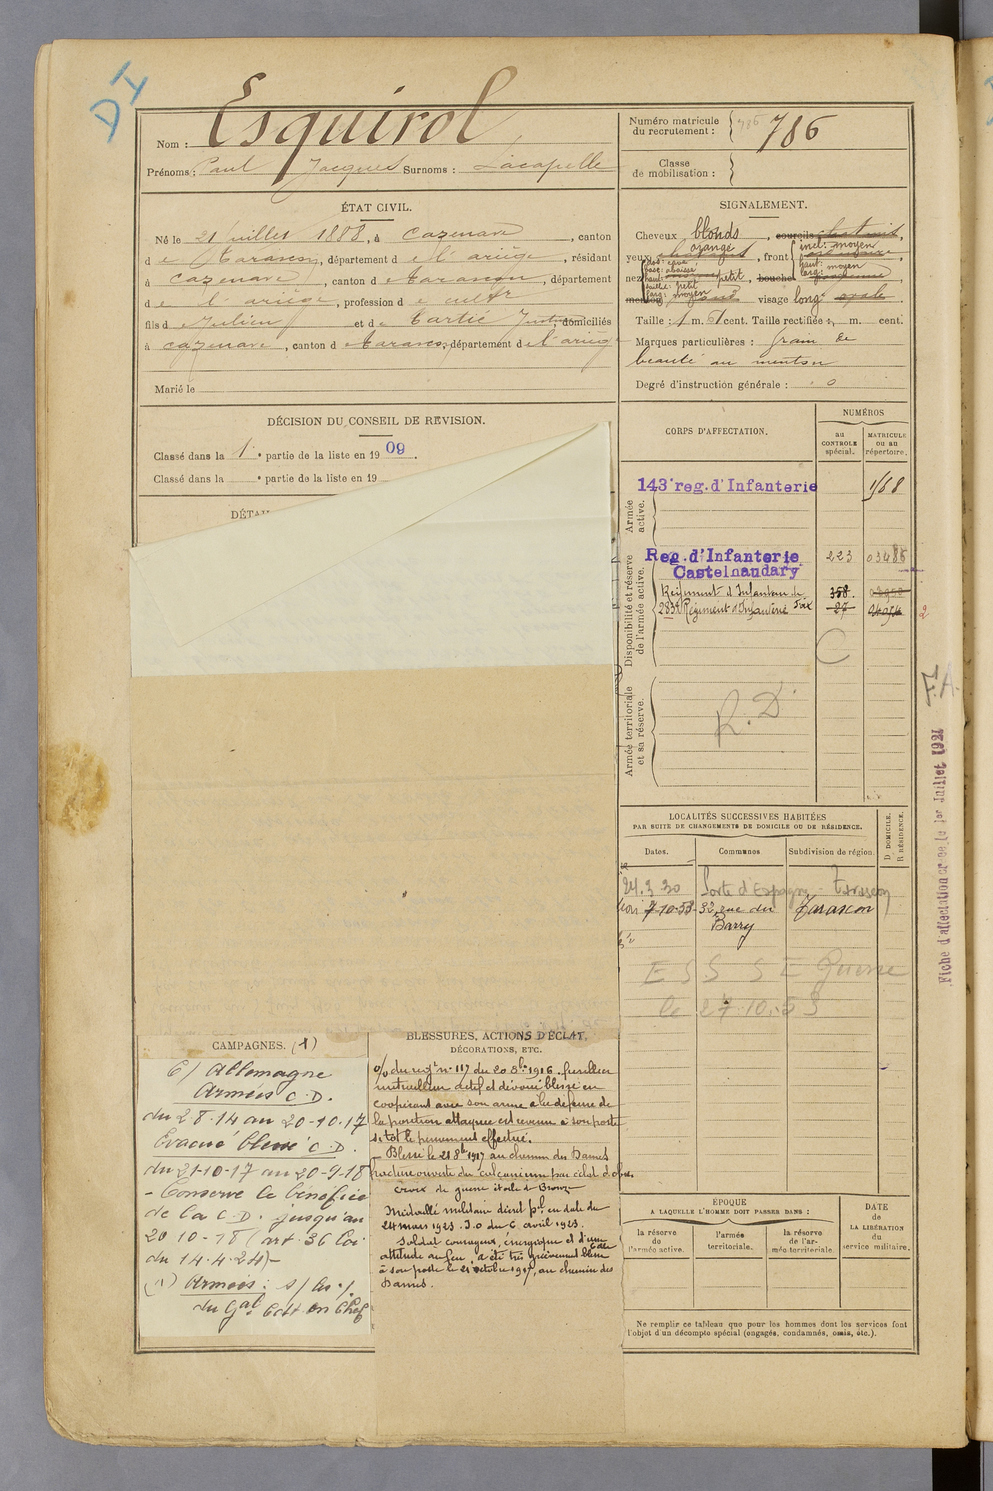 DI
Esquirol
Nom :
Prénoms : Paul Jacques Surnoms : Lacapelle
Numéro matricule
du recrutement : 786
Classe
de mobilisation :
ÉTAT CIVIL.
Né le 21 juillet 1888, à Cazenave, canton
de Tarascon, département de l'ariège, résidant
à cazenave, canton de Tarascon, département
de l'ariège, profession de cultr
fils de Julien et de Justine, domiciliés
à cazenave, canton de Tarascon, département de l'ariège
Marié le
SIGNALEMENT.
Cheveux blonds, sourcils
yeux orangé, front incl: moyen
haut: moyen
larg: moyen
nez dos: cavé
base: abaissé
haut: petit, bouche
saillie: petit
larg: moyen
menton visage long ovale
Taille : 1 m. 61 cent. Taille rectifiée : m. cent.
Marques particulières : grain de
beauté au menton
Degré d'instruction générale : 0
DÉCISION DU CONSEIL DE REVISION.
Classé dans la 1e partie de la liste en 1909.
Classé dans la e partie de la liste en 19
DÉTAI
CORPS D'AFFECTATION.
NUMÉROS
au
CONTROLE
spécial.
MATRICULE
OU AU
répertoire.
Armée
active.
143e reg. d'Infanterie
Disponibilité et réserve
de l'armée active.
Reg. d'Infanterie 223 03486
Castelnaudary
Régiment d'Infanterie de Foix 358.
283e Régiment d'Infanterie 27
C
Armée territoriale
et sa réserve.
R. D
F.A.
Fiche d'affectation créée le 1er Juillet 1921
2
LOCALITÉS SUCCESSIVES HABITÉES
PAR SUITE DE CHANGEMENTS DE DOMICILE OU DE RÉSIDENCE.
Dates.
Communes
Subdivision de région.
D. DOMICILE.
R. RÉSIDENCE.
24.3.30 Porte d'Espagne - Tarascon
7-10-53 32, rue du Tarascon
Barry
E S S S E Guerre
le 27.10.53
CAMPAGNES. (1)
C/ Allemagne
Armées C.D.
du 2-8-14 au 20-10-17
Evacué blessé C.D.
du 21-10-17 au 20-9-18
- Conserve le bénéfice
de la C.D. jusqu'au
20-10-18 (art. 36 Loi
du 14.4.24) -
(1) Armées : s/ les o/.
du Gal Cdt en Chef
BLESSURES, ACTIONS D'ÉCLAT,
DÉCORATIONS, ETC.
o/ du regt n° 117 du 20 Sbre 1916. fusillier
mitrailleur actif et dévoué blessé en
coopérant avec son arme à la défense de
la position attaquée est revenu à son poste
sitôt le pansement effectué.
- Blessé le 21 8bre 1917 au chemin des Dames
fracture ouverte du calcanéum par éclat d'obus.
Croix de guerre étoile de Bronze
Médaillé militaire décret pal en date du
24 mars 1923. J.O du 6 avril 1923.
Soldat courageux, énergique et d'une belle
attitude au feu, a été très grièvement blessé
à son poste le 21 octobre 1917, au chemin des
Dames.
ÉPOQUE
A LAQUELLE L'HOMME DOIT PASSER DANS :
la réserve
de
l'armée active.
l'armée
territoriale.
la réserve
de l'ar-
mée territoriale.
DATE
de
LA LIBÉRATION
du
service militaire.
Ne remplir ce tableau que pour les hommes dont les services font
l'objet d'un décompte spécial (engagés, condamnés, omis, etc.).